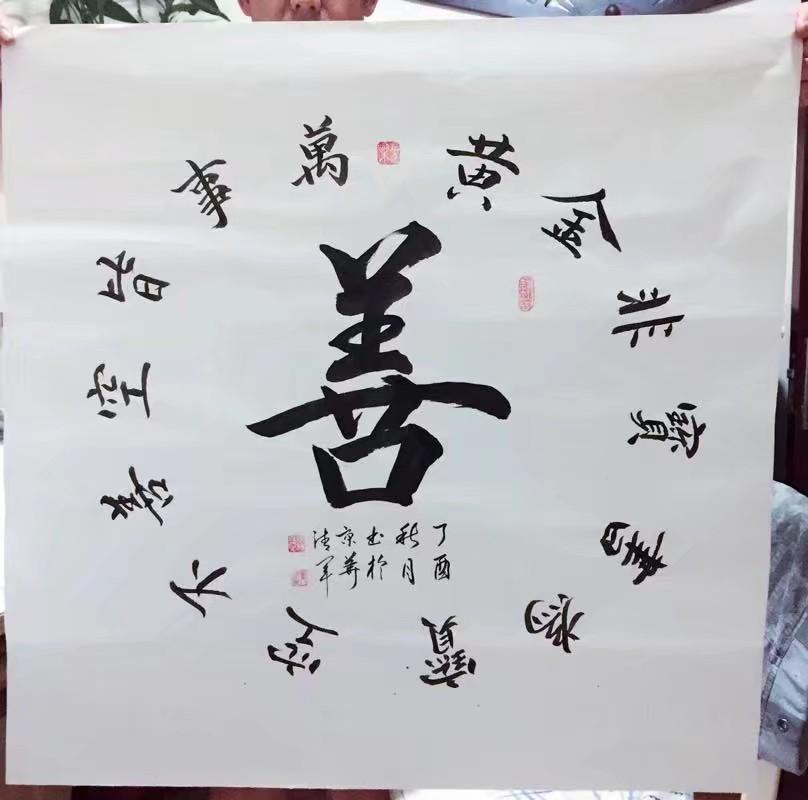 善
黄金非寶書為寶
萬事皆空善不空
丁酉
秋月
书於
京華
军